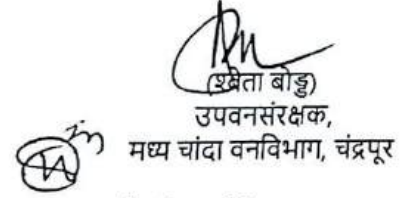 (श्वेता बोड्डू)
उपवनसंरक्षक,
मध्य चांदा वनविभाग, चंद्रपूर